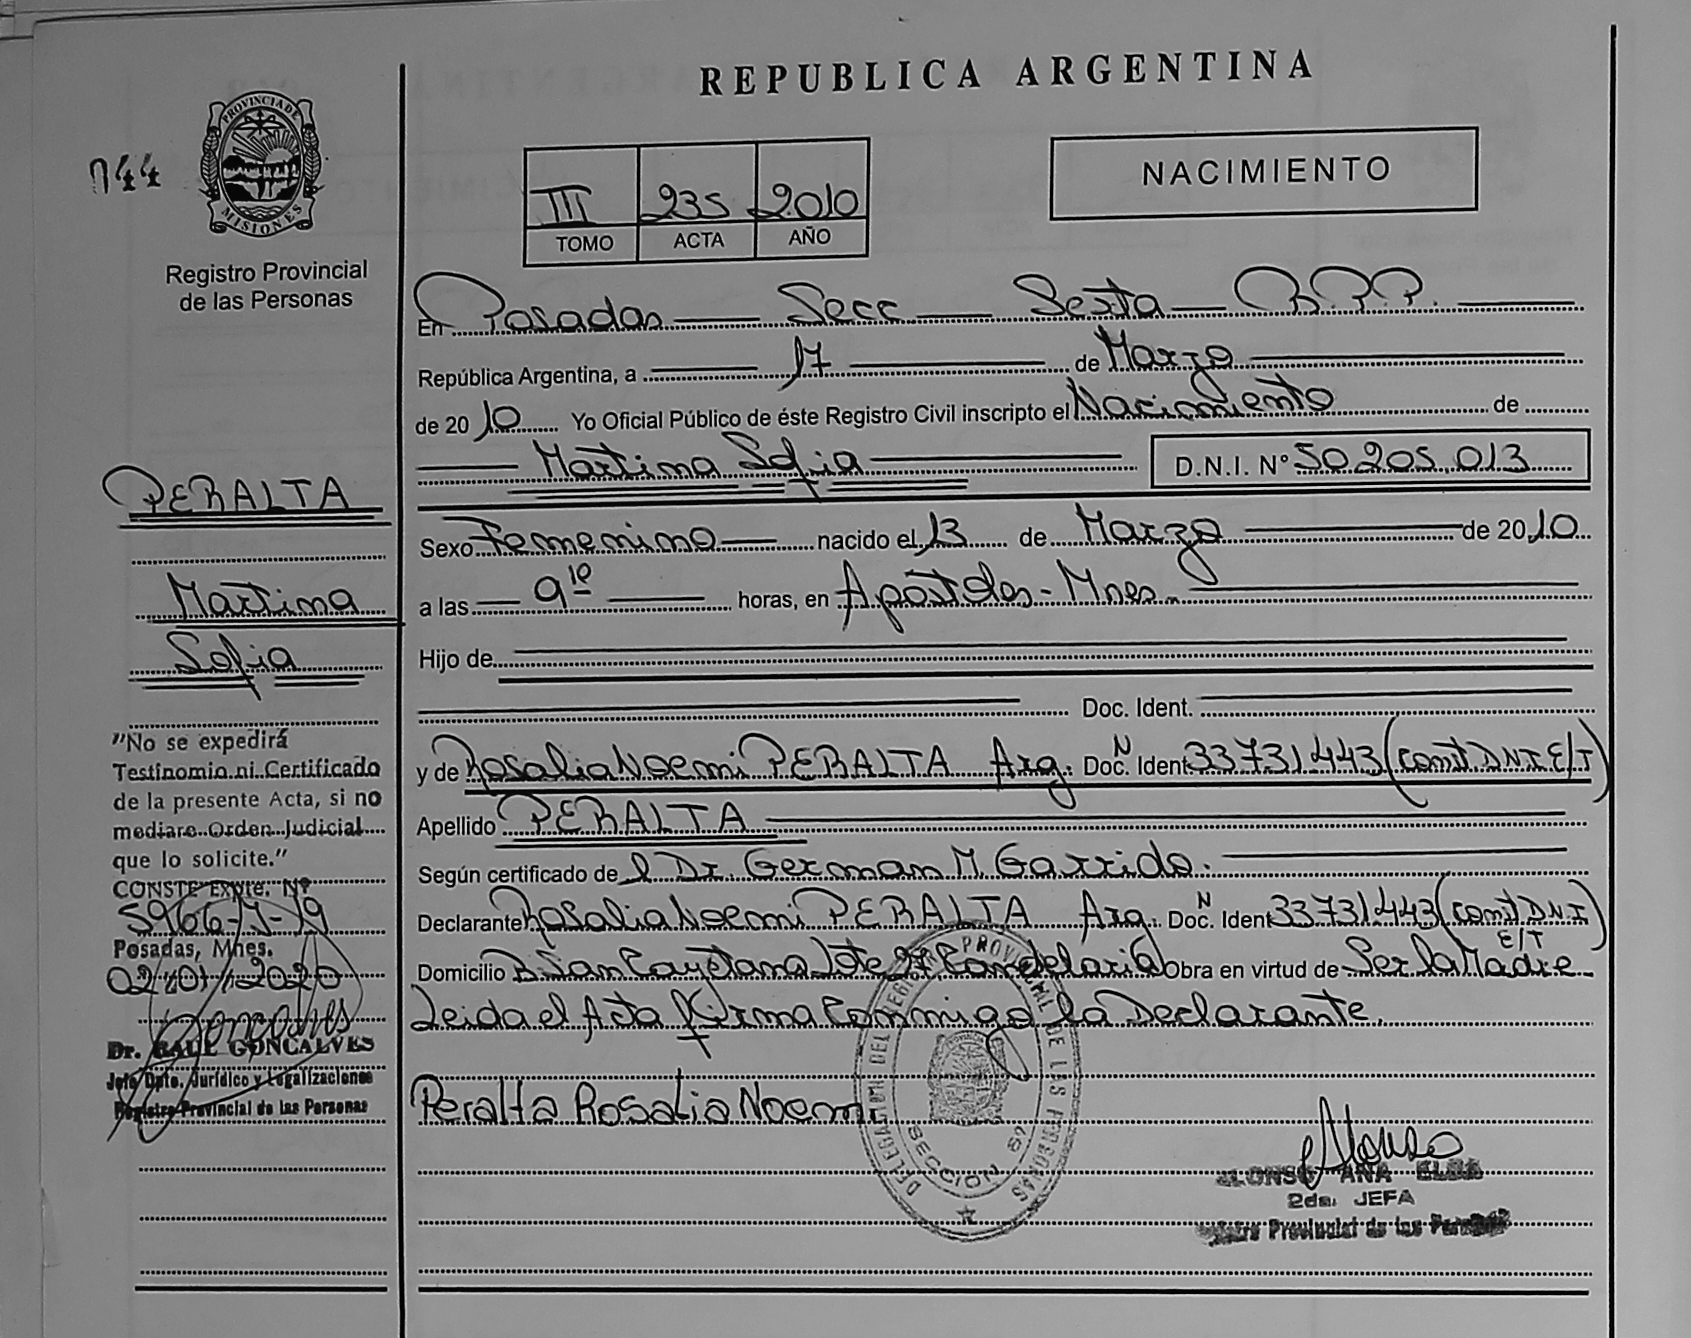 REPUBLICA ARGENTINA
744
PROVINCIA DE
MISIONES
Registro Provincial
de las Personas
III 235 2010
TOMO ACTA AÑO
NACIMIENTO
En Posadas Secc Sexta R.P.P.
República Argentina, a 17 de Marzo
de 2010 Yo Oficial Público de éste Registro Civil inscripto el Nacimiento de
Martina Sofia D.N.I. Nº 50.205.013
Sexo Femenino nacido el 13 de Marzo de 2010
a las 9 10 horas, en Apóstoles - Mnes.
Hijo de
Doc. Ident.
y de Rosalia Noemi PERALTA Arg. Doc. N Ident. 33731443 (cont D N I E/T)
Apellido PERALTA
Según certificado de l Dr. German M. Garrido.
Declarante Rosalia Noemi PERALTA Arg. Doc. N Ident 33731443 (cont D N I E/T)
Domicilio Candelaria Obra en virtud de Ser la Madre
Leida el Acta Firma Conmigo la Declarante.
Peralta Rosalia Noemi
PERALTA
Martina
Sofia
"No se expedirá
Testimonio ni Certificado
de la presente Acta, si no
mediare Orden Judicial
que lo solicite."
CONSTE Expte. Nº
5966-J-19
Posadas, Mnes.
02/01/2020
Dr. RAUL GONCALVES
Jefe Dpto. Jurídico y Legalizaciones
Registro Provincial de las Personas
SECCION 6ª
ALONSO ANA ELSA
2da. JEFA
Provincial de las Personas